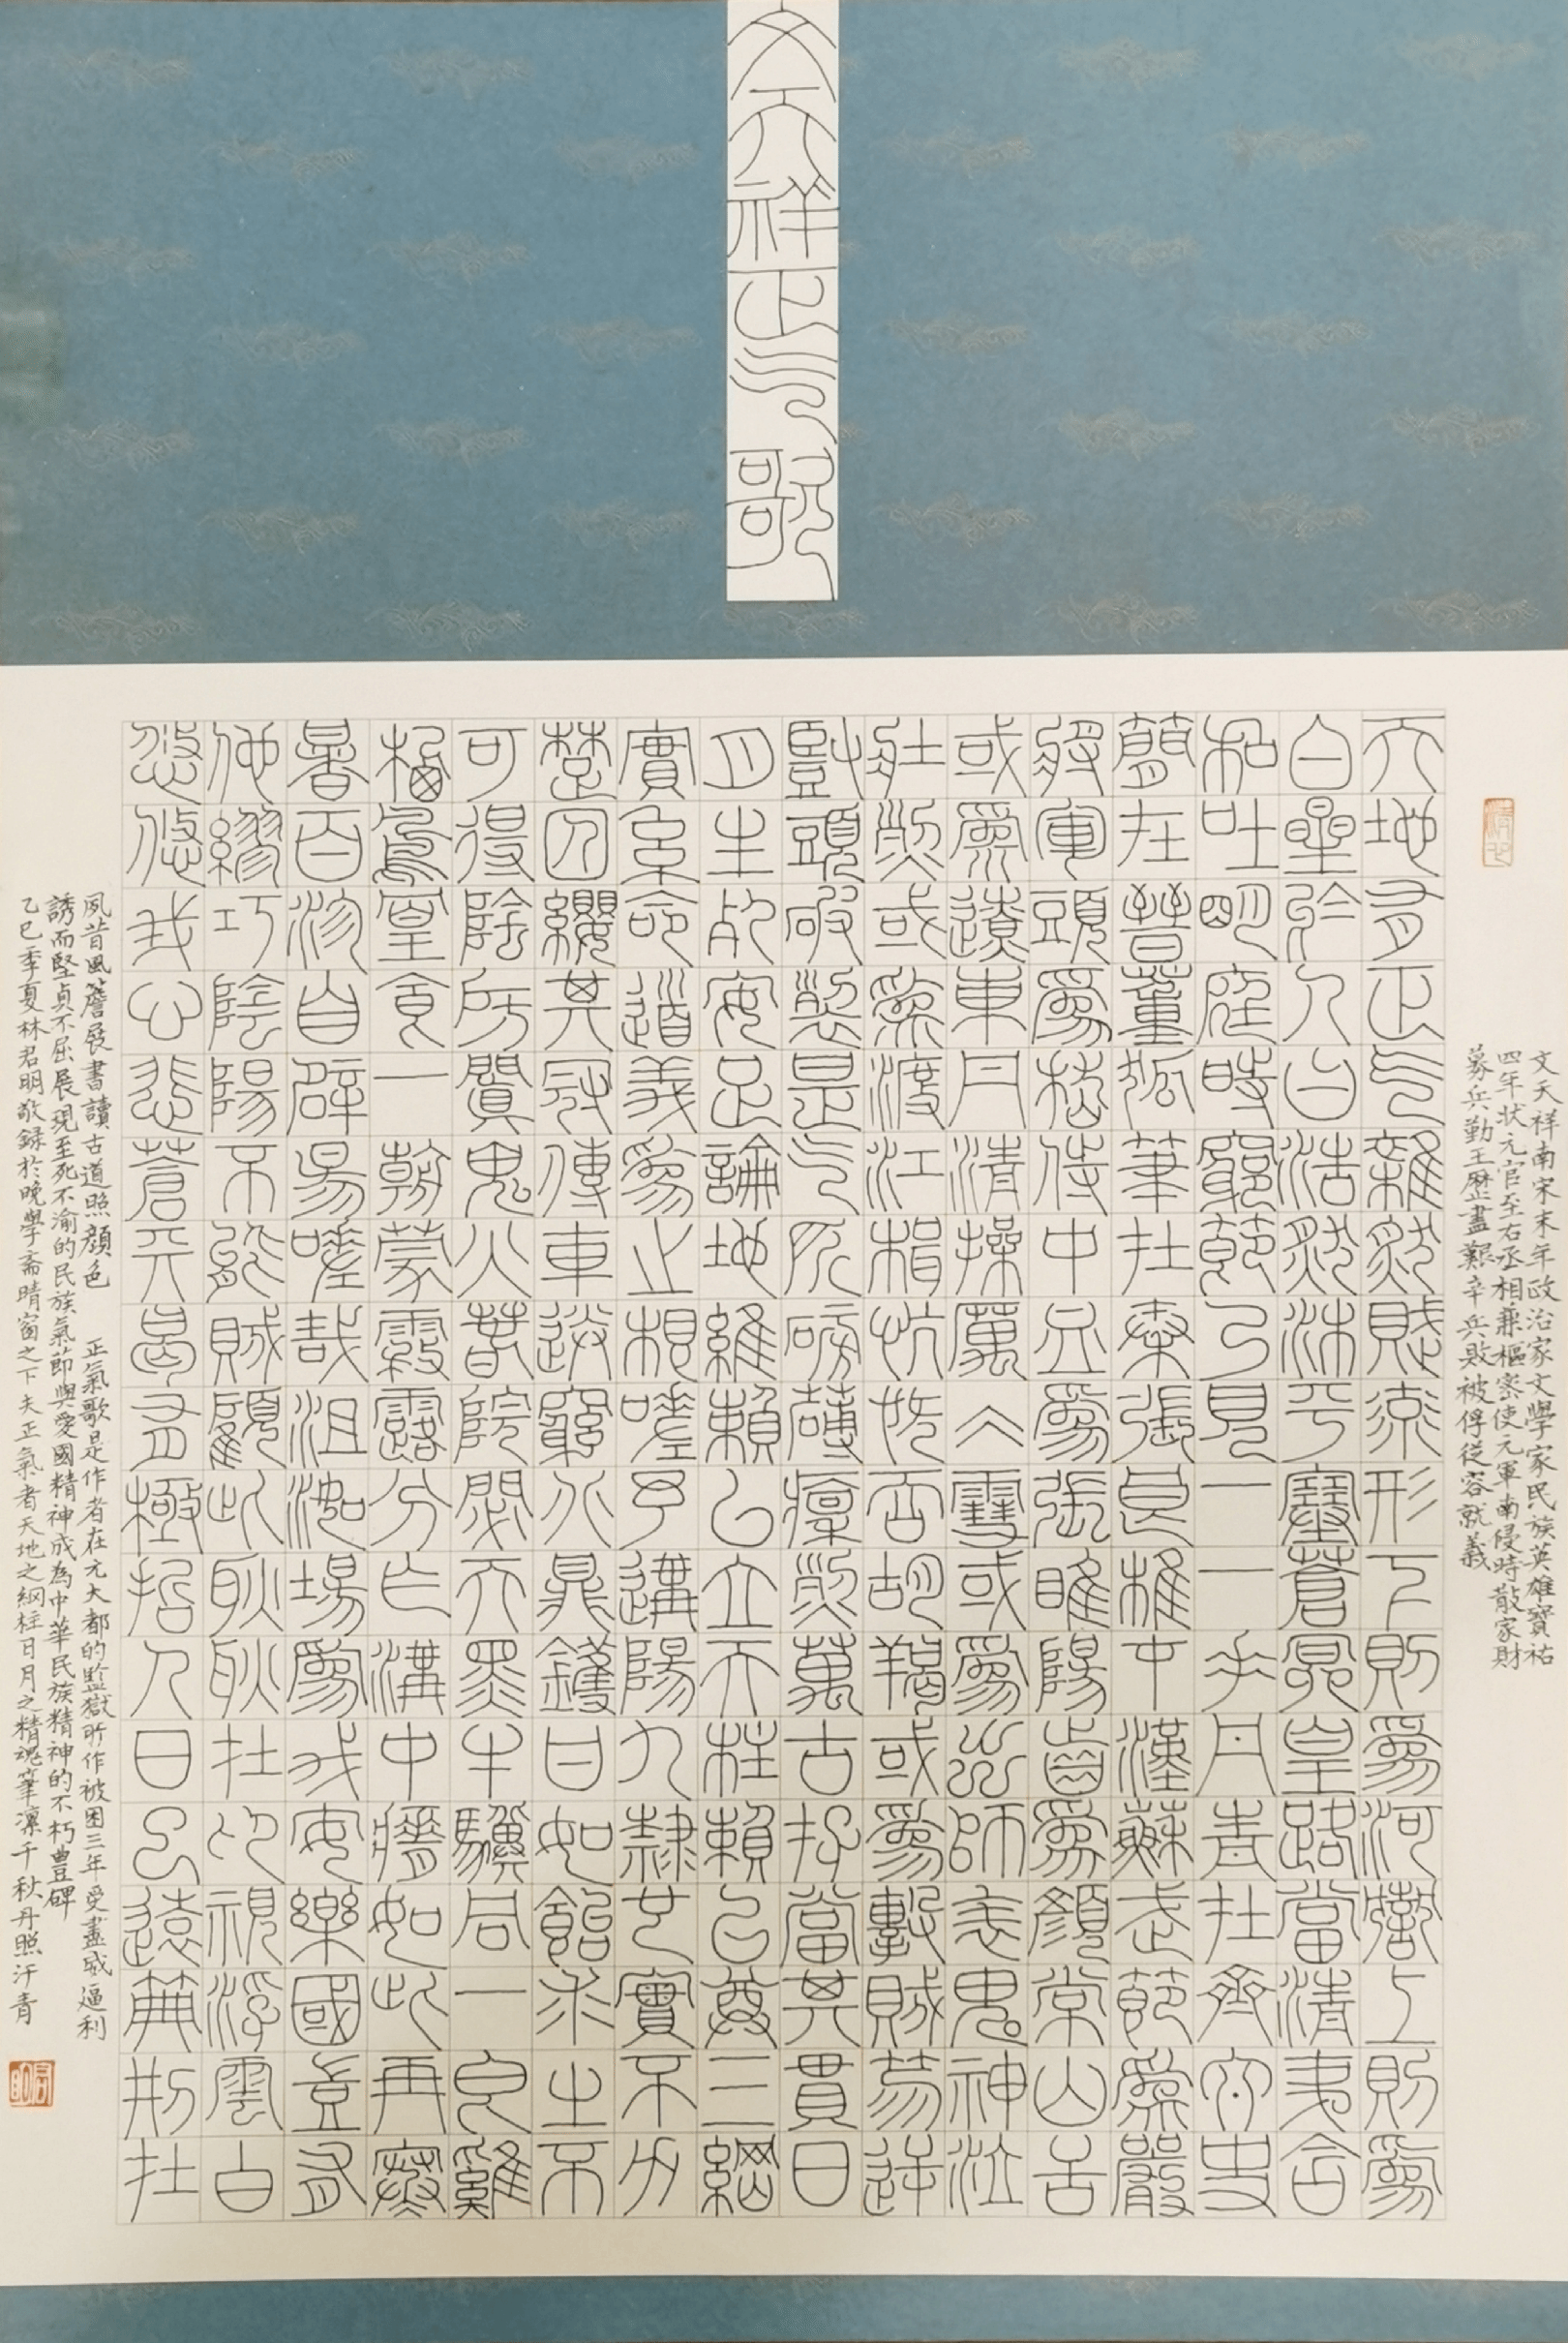 文天祥正氣歌
文天祥南宋末年政治家文學家民族英雄寶祐
四年狀元官至右丞相兼樞密使元軍南侵時散家財
募兵勤王歷盡艱辛兵敗被俘從容就義
天地有正氣雜然賦流形下則為河嶽上則為
日星於人曰浩然沛乎塞蒼冥皇路當清夷含
和吐明庭時窮節乃見一一垂丹青在齊太史
簡在晉董狐筆在秦張良椎在漢蘇武節為嚴
將軍頭為嵇侍中血為張睢陽齒為顏常山舌
或為遼東帽清操厲冰雪或為出師表鬼神泣
壯烈或為渡江楫慷慨吞胡羯或為擊賊笏逆
豎頭破裂是氣所磅礴凜烈萬古存當其貫日
月生死安足論地維賴以立天柱賴以尊三綱
實係命道義為之根嗟予遘陽九隸也實不力
楚囚纓其冠傳車送窮北鼎鑊甘如飴求之不
可得陰房闃鬼火春院閟天黑牛驥同一皂雞
棲鳳凰食一朝蒙霧露分作溝中瘠如此再寒
暑百沴自辟易嗟哉沮洳場為我安樂國豈有
他繆巧陰陽不能賊顧此耿耿在仰視浮雲白
悠悠我心悲蒼天曷有極哲人日已遠典刑在
夙昔風簷展書讀古道照顏色 正氣歌是作者在元大都的監獄所作被困三年受盡威逼利
誘而堅貞不屈展現至死不渝的民族氣節與愛國精神成為中華民族精神的不朽豐碑
乙巳季夏林君明敬錄於晚學斋晴窗之下夫正氣者天地之綱柱日月之精魂筆凛千秋丹照汗青